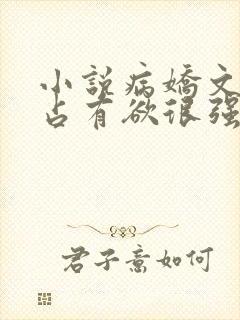 小说病娇文
占有欲很强
君子意如何